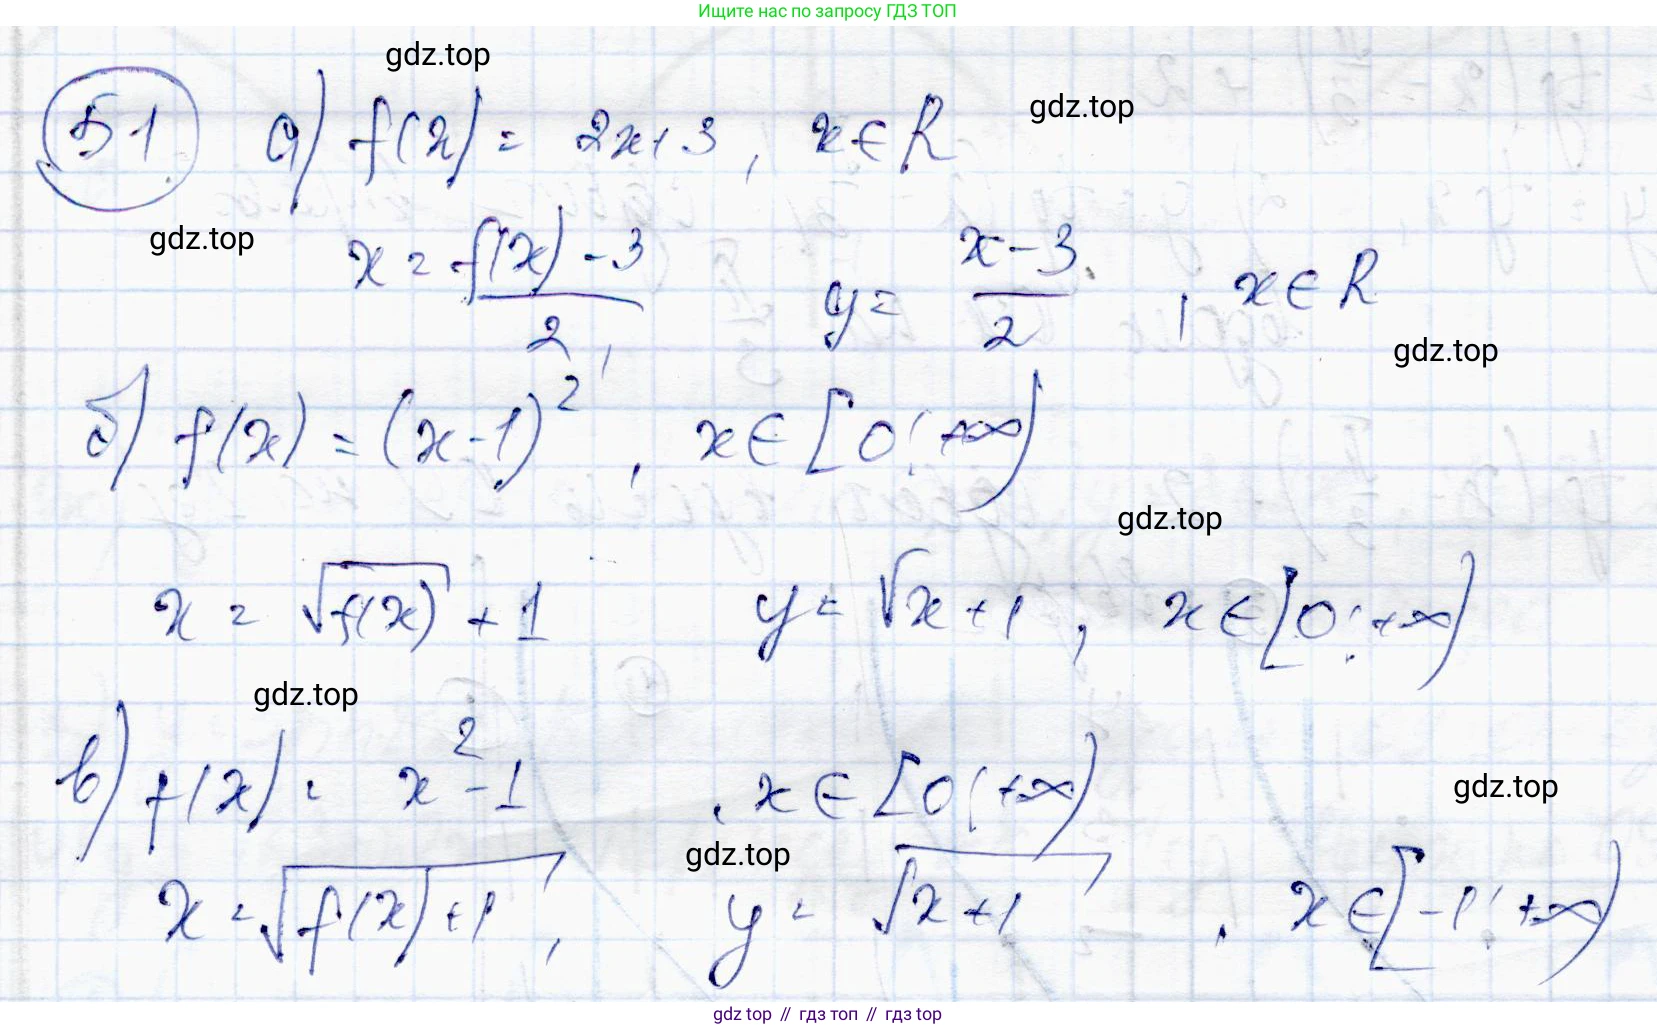 Ищите нас по запросу ГДЗ ТОП
gdz.top
Б1 а) f(x) = 2x+3, x∈R
gdz.top
gdz.top
x = (f(x) - 3)/2, y = (x-3)/2, x∈R
gdz.top
б) f(x) = (x-1)², x∈[0; +∞)
gdz.top
x = √f(x) + 1 y = √x + 1, x∈[0; +∞)
gdz.top
в) f(x) = x² - 1, x∈[0; +∞)
gdz.top
gdz.top
x = √(f(x)+1), y = √(x+1), x∈[-1; +∞)
gdz top // гдз топ // gdz.top